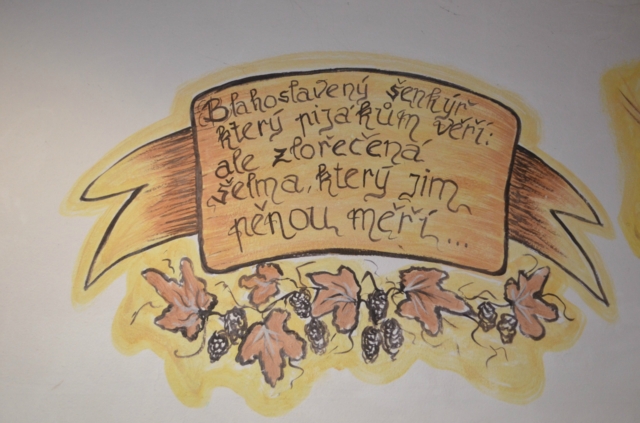 Blahoslavený šenkýř
který pijákům věří:
ale zlořečená
šelma, který jim
pěnou měří...